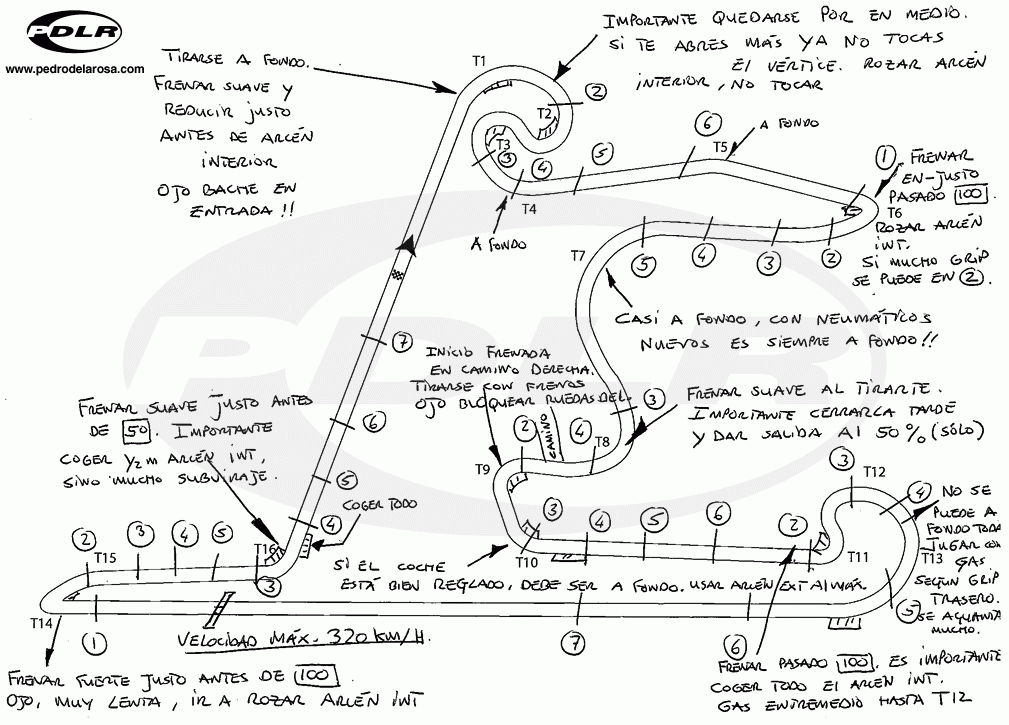 PDLR
www.pedrodelarosa.com
TIRARSE A FONDO.
FRENAR SUAVE Y
REDUCIR JUSTO
ANTES DE ARCÉN
INTERIOR
OJO BACHE EN
ENTRADA!!
T1
IMPORTANTE QUEDARSE POR EN MEDIO.
SI TE ABRES MÁS YA NO TOCAS
El VÉRTICE. ROZAR ARCÉN
INTERIOR, NO TOCAR
2
T2
T3
3
4
5
6
T4
A FONDO
T5
A FONDO
1
FRENAR
EN-JUSTO
PASADO 100.
T6
ROZAR ARCÉN
INT.
SI MUCHO GRIP
SE PUEDE EN 2.
T7
5
4
3
2
CASI A FONDO, CON NEUMÁTICOS
NUEVOS ES SIEMPRE A FONDO!!
7
6
5
4
INICIO FRENADA
EN CAMINO DERECHA.
TIRARSE CON FRENOS
OJO BLOQUEAR RUEDAS DEL.
3
FRENAR SUAVE AL TIRARTE.
IMPORTANTE CERRARLA TARDE
Y DAR SALIDA Al 50% (SÓLO)
2
CAMINO
4
T8
T9
FRENAR SUAVE JUSTO ANTES
DE 50. IMPORTANTE
COGER 1/2 m ARCÉN INT,
SINO MUCHO SUBVIRAJE.
COGER TODO
2
T15
3
4
5
T16
3
3
T10
4
5
6
2
T11
3
T12
4
T13
NO SE
PUEDE A
FONDO TODA
JUGAR CON
GAS
SEGÚN GRIP
TRASERO.
SE AGUANTA
MUCHO.
5
SI EL COCHE
ESTÁ BIEN REGLADO, DEBE SER A FONDO. USAR ARCÉN EXT Al MÁX.
T14
1
VELOCIDAD MÁX. 320 KM/H.
7
6
FRENAR FUERTE JUSTO ANTES DE 100.
OJO, MUY LENTA, IR A ROZAR ARCÉN INT
FRENAR PASADO 100. ES IMPORTANTE
COGER TODO El ARCEN INT.
GAS ENTREMEDIO HASTA T12
PDLR